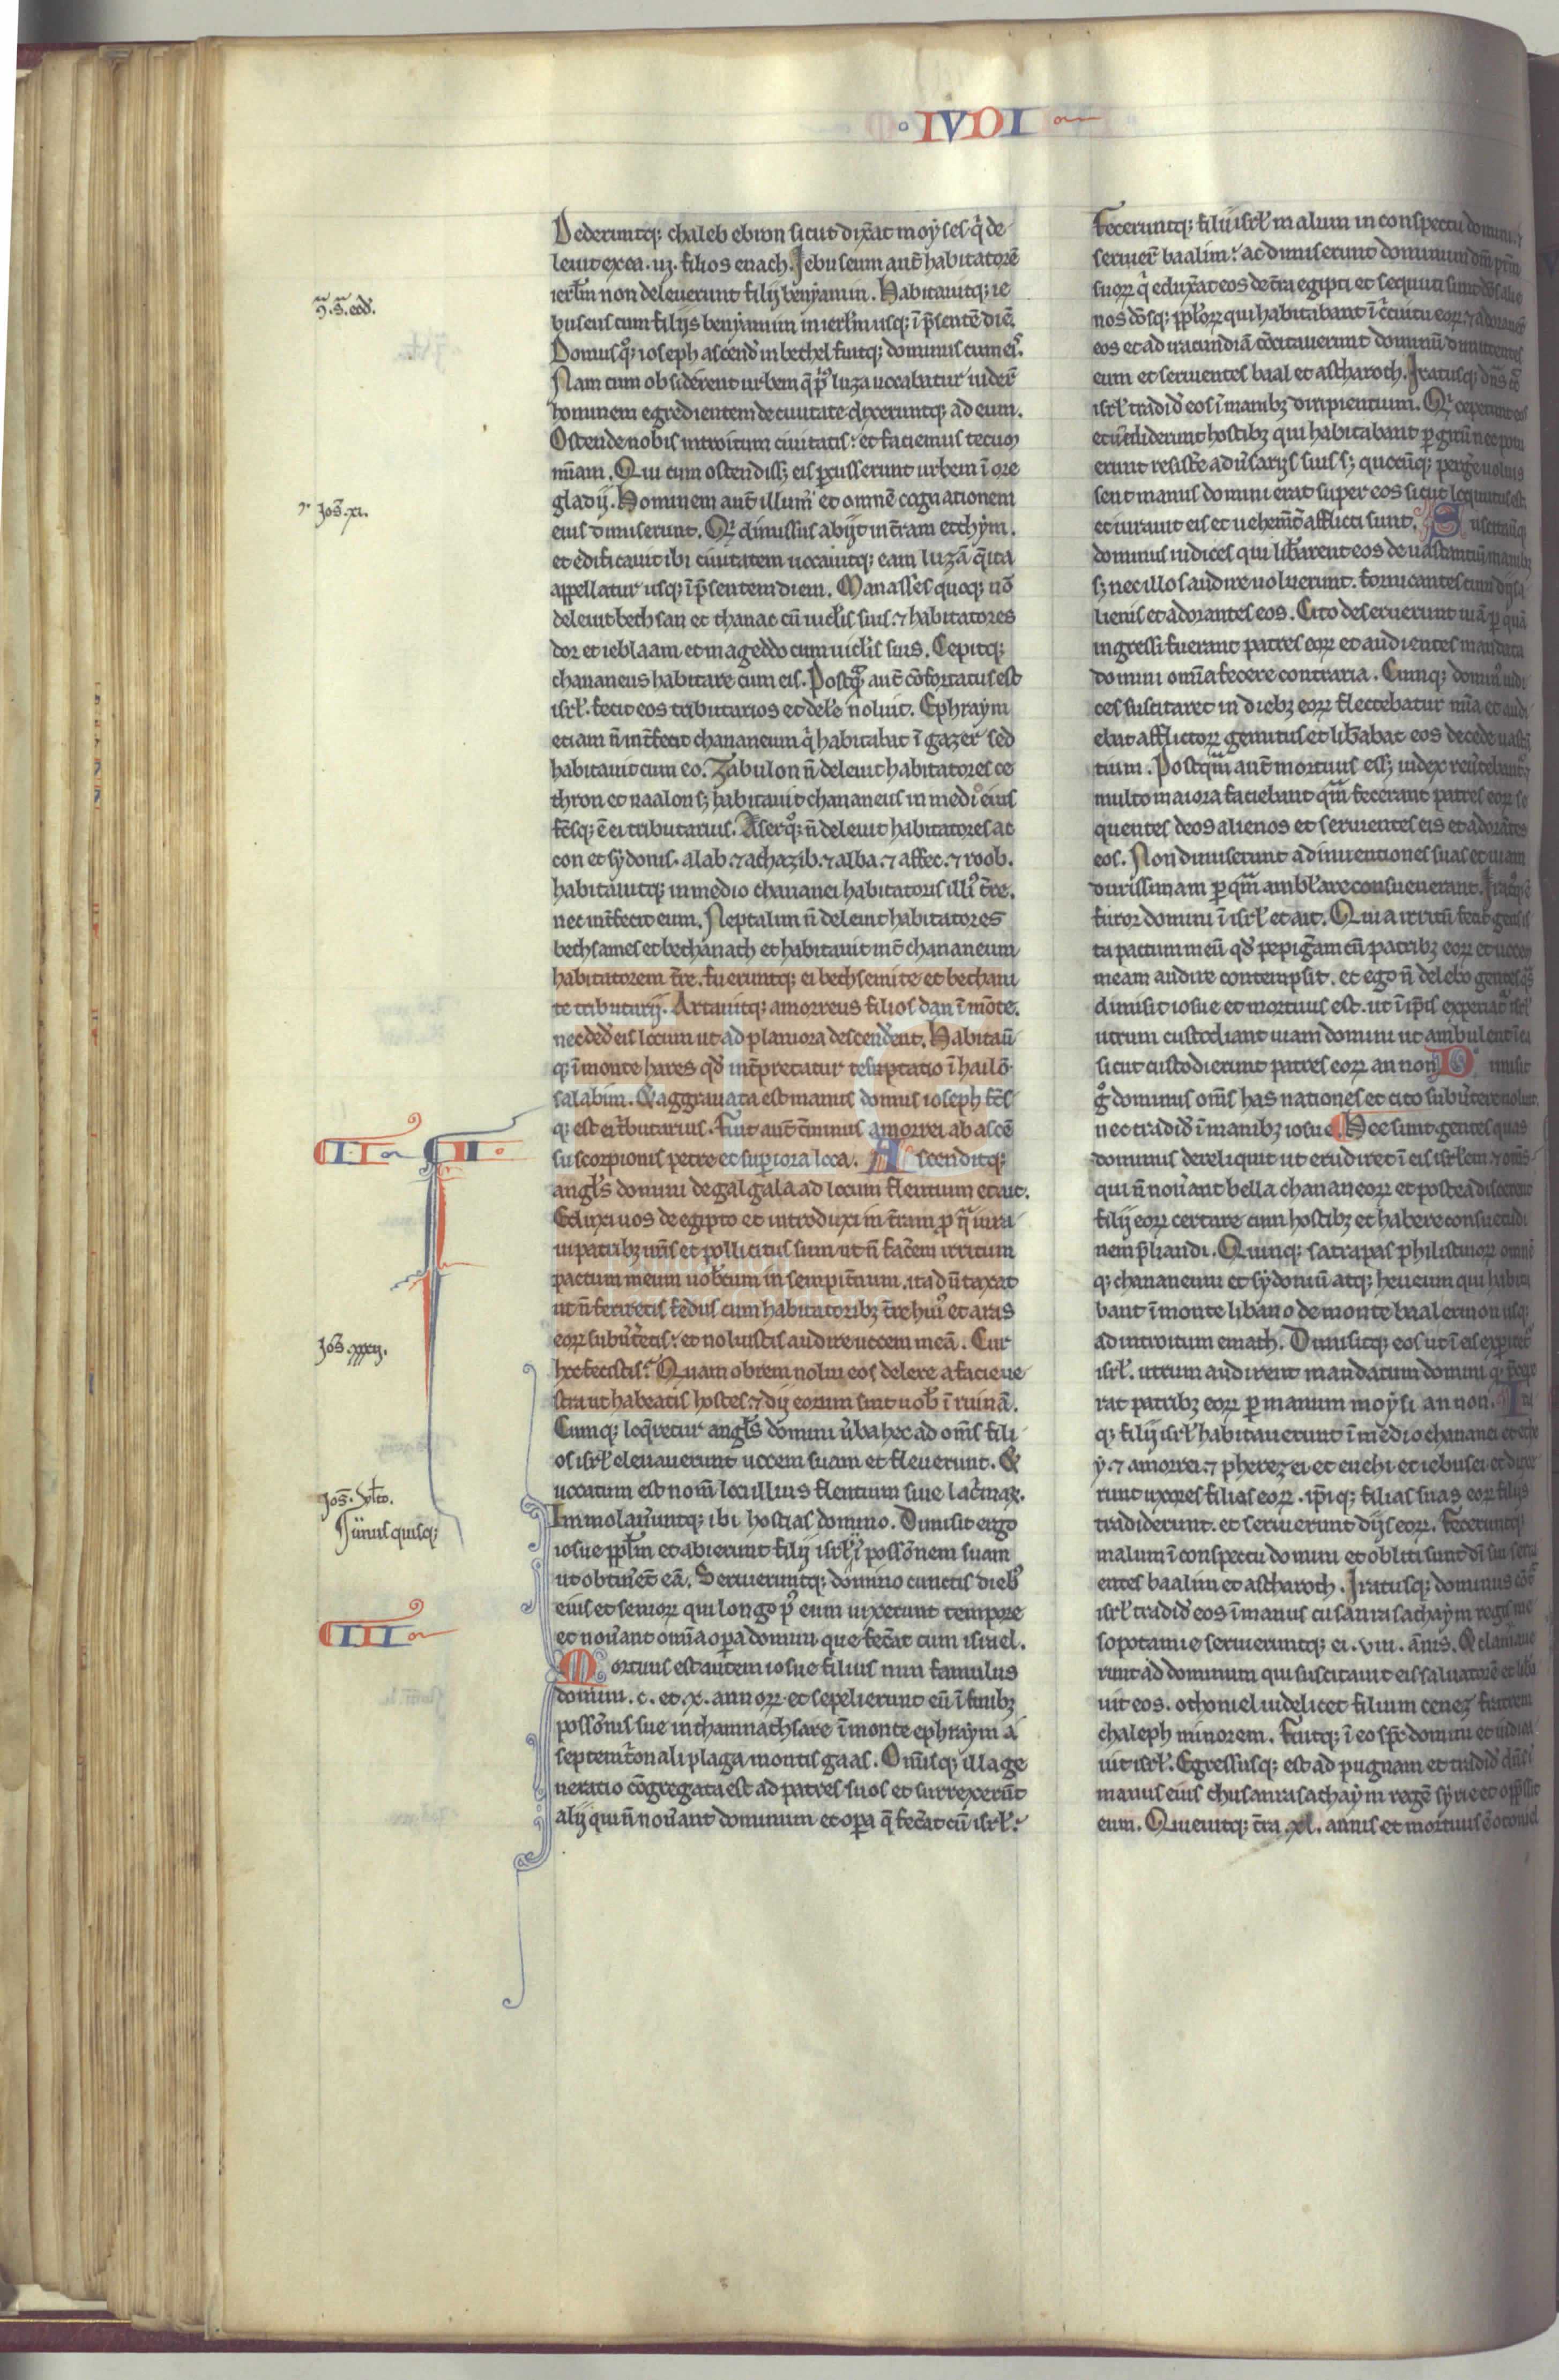 IVDI
Dederuntq; chaleb ebron sicut dixat moyses q̇ de
leuit ex ea .iij. filios enach. Jebuseum aut̄ habitatorē
ierl̄m non deleuerunt filij benjamin. Habitauitq; ie
buseus cum filijs benjamim in ierl̄m usq; ī p̄sentē diē.
Domus q°; ioseph ascend̄ in bethel fuitq; dominus cum eis.
Nam cum obsiderent urbem q̄ p̄us luza uocabatur uider̄
hominem egredientem de ciuitate dixeruntq; ad eum.
Ostende nobis introitum ciuitatis: et faciemus tecum
mīam. Qui cum ostendiss; eis p̄cusserunt urbem ī ore
gladij. Hominem aut̄ illum et omnē cognationem
eius dimiserunt. Q̄ dimissus abijt in t̄ram etthym.
et edificauit ibi ciuitatem uocauitq; eam luzā q̄ ita
appellatur usq; ī p̄sentem diem. Manasses quoq; nō
deleuit bethsan et thanac cū uicl̄is suis. ⁊ habitatores
dor et ieblaam et mageddo cum uicl̄is suis. Cepitq;
chananeus habitare cum eis. Postq̄ aut̄ cōfortatus est
isrl̄. fecit eos tributarios et del̄e noluit. Ephraym
etiam n̄ int̄fecit chananeum q̇ habitabat ī gazer sed
habitauit cum eo. Zabulon n̄ deleuit habitatores ce
thron et naalon s; habitauit chananeus in medio eius
fc̄sq; ē ei tributarius. Aser q°; n̄ deleuit habitatores ac
con et sydonis. alab. ⁊ achazib. ⁊ alba. ⁊ affec. ⁊ roob.
habitauitq; in medio chananei habitatoris illius t̄re.
nec int̄fecit eum. Neptalim n̄ deleuit habitatores
bethsames et bethanath et habitauit int̄ chananeum
habitatorem t̄re. fueruntq; ei bethsemite et bethani
te tributarij. Artauitq; amorreus filios dan ī mōte.
nec ded̄ eis locum ut ad planiora descenderent. Habitaū
q; ī monte hares qd̄ int̄pretatur testaptatio ī hailō
salabim. Et aggrauata est manus domus ioseph fc̄s
q; est ei tributarius. Fuit aut̄ t̄minus amorrei ab ascē
su scorpionis petre et superiora loca. Ascenditq;
angl̄s domini de galgala ad locum flentium et ait.
Eduxi uos de egipto et introduxi in t̄ram p̄ q̄ iura
ui patribz ur̄is et pollicitus sum ut n̄ facerem irritum
pactum meum uobcum in sempit̄num. ita dūtaxat
ut n̄ feriretis fedus cum habitatoribz t̄re huius et aras
eorum subuerteretis: et noluistis audire uocem meā. Cur
hec fecistis? Quam obrem nolui eos delere a facie ue
stra ut habeatis hostes. ⁊ dij eorum sint uob̄ ī ruinā.
Cumq; loq̄retur angl̄s domini ūba hec ad om̄s fili
os isrl̄ eleuauerunt uocem suam et fleuerunt. Et
uocatum est nom̄ loci illius flentium siue lac̄rimar̄.
Immolaueruntq; ibi hostias domino. Dimisit ergo
iosue ppl̄m et abierunt filij isrl̄ ī possōnem suam
ut obtineret̄ eā. Seruieruntq; domino cunctis diebus
eius et seniorum qui longo p̄ eum uixerunt tempore
et nouerant omnia opera domini que fecerat cum israel.
Mortuus est autem iosue filius nun famulus
domini .c. et .x. annorum et sepelierunt eū ī finibz
possōnis sue in thamnathsare ī monte ephraym a
septemt̄onali plaga montis gaas. Omnisq; illa ge
neratio cōgregata est ad patres suos et surrexerūt
alij qui n̄ nouerant dominum et opera q̄ fecerat cū isrl̄.
Feceruntq; filij isrl̄ malum in conspectu domini. ⁊
seruier̄ baalim: ac dimiserunt dominum dm̄ pr̄m
suorum q̇ eduxat eos de t̄ra egipti et sequuti sunt dōs alie
nos dōsq; ppl̄orum qui habitabant ī c̄cuitu eorum. ⁊ adorauer̄
eos et ad iracundiā cōcitauerunt dominū dimittentes
eum et seruientes baal et astharoth. Iratusq; dn̄s cō
isrl̄ tradid̄ eos ī manibz diripientium. Q̄ ceperunt eos
et uendiderunt hostibz qui habitabant p̄ girū nec potu
erunt resist̄e aduersarijs suis s; quocūq; perge uoluis
sent manus domini erat super eos sicut loquutus est
et iurauit eis et uehement̄ afflicti sunt. Suscitauitq;
dominus iudices qui lib̄arent eos de uastantiū manibz
s; nec illos audire uoluerunt. fornicantes cum dijs a
lienis et adorantes eos. Cito deseruerunt uiā p̄ quā
ingressi fuerant patres eorum et audientes mandata
domini omīa fecere contraria. Cumq; dominus iudi
ces suscitaret in diebz eorum flectebatur mīa et audi
ebat afflictorum gemitus et lib̄abat eos de cede uastā
tium. Postq̄m aut̄ mortuus ess; iudex reūtebantur ⁊
multo maiora faciebant q̄m fecerant patres eorum se
quentes deos alienos et seruientes eis et adorātes
eos. Non dimiserunt adinuentiones suas et uiam
durissimam p̄ q̄m ambl̄are consueuerant. Iratusq; ē
furor domini ī isrl̄ et ait. Quia irritū fecit gens is
ta pactum meū qd̄ pepigeram cū patribz eorum et uocem
meam audire contempsit. et ego n̄ delebo gentes q̄s
dimisit iosue et mortuus est. ut ī ip̄is experiat̄ isrl̄
utrum custodiant uiam domini ut ambulent ī ea
sicut custodierunt patres eorum an non. Dimisit
g° dominus om̄s has nationes et cito subūtere noluit.
nec tradid̄ ī manibz iosue. Hee sunt gentes quas
dominus dereliquit ut erudiret ī eis isrl̄em ⁊ om̄s
qui n̄ nouerant bella chananeorum et postea discerent
filij eorum certare cum hostibz et habere consuetudi
nem p̄liandi. Quinq; satrapas philistinorum omnē
q; chananeum et sydoniū atq; heueum qui habita
bant ī monte libano de monte baal ermon usq;
ad introitum emath. Dimisitq; eos ut ī eis experiret̄
isrl̄. utrum audirent mandatum domini q̄ p̄cepe
rat patribz eorum p̄ manum moysi. an non. Ita
q; filij isrl̄ habitauerunt ī medio chananei et ethe
y. ⁊ amorrei. ⁊ pherezei et euehi et iebusei et duxe
runt uxores filias eorum. ip̄iq; filias suas eorum filijs
tradiderunt. et seruierunt dijs eorum. Feceruntq;
malum ī conspectu domini et obliti sunt dī sui serui
entes baalim et astharoth. Iratusq; dominus cōt̄
isrl̄ tradid̄ eos ī manus cusanrasathaym regis me
sopotamie seruieruntq; ei .viii. annis. Et clamaue
runt ad dominum qui suscitauit eis saluatorē et libe
uit eos. othoniel uidelicet filium cenez fratrem
chaleph minorem. Fuitq; ī eo sp̄c domini et iudica
uit isrl̄. Egressusq; est ad pugnam et tradid̄ dn̄s ī
manus eius chusanrasathaym regē syrie et opp̄ssit
eum. Quieuitq; t̄ra .xl. annis et mortuus ē otoniel
Jos̄. xi.
II
II
Jos̄. xxxij.
Jos̄. ult̄o.
unusquisq;
III